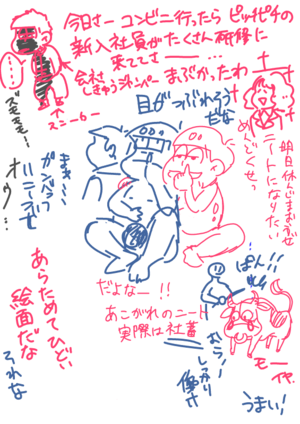 今日さー コンビニ行ったら ピッチピチの
新入社員がたくさん研修に
来ててさ
まぶかったわー
会社
しきゅう
目がつぶれそう
だな
明日休んじまおうぜ
ニートになりたい
めんどくせっ
ズモモモー
スニーカー
オウ…
だよなー!!
あこがれのニート
実際は社畜
あらためてひどい
絵面だな
それな
ぱん!!
おらー!
しっかり
働け
モー
イヤ
うまい!